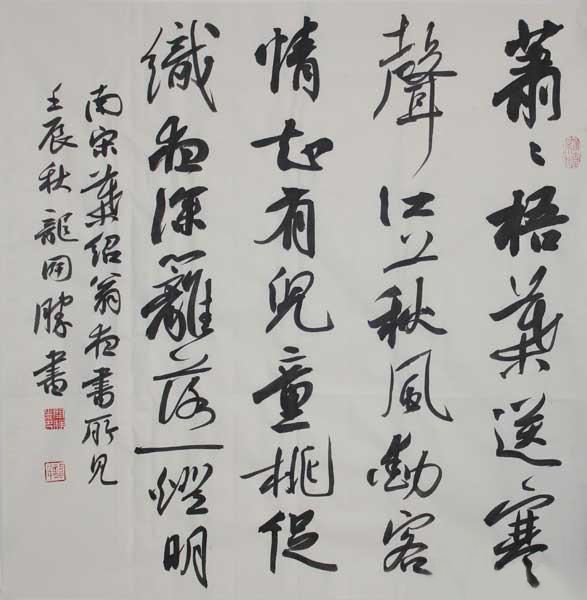 蕭〻梧葉送寒
聲江上秋風動客
情知有兒童挑促
織夜深籬落一燈明
南宋葉紹翁夜書所見
壬辰秋龍開勝書